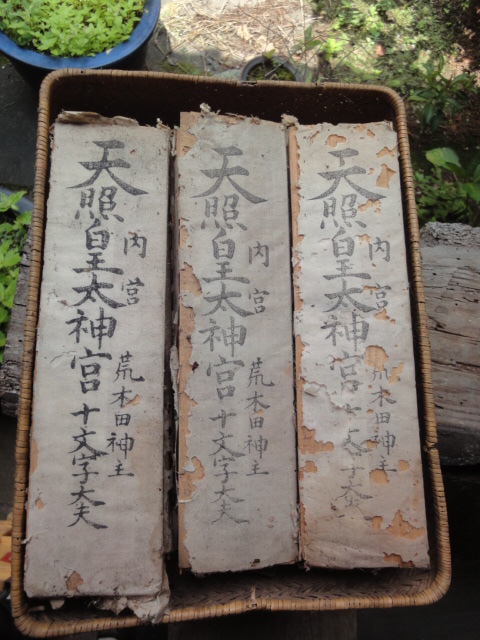 内宮 荒木田神主
天照皇太神宮 十文字大夫
内宮 荒木田神主
天照皇太神宮 十文字大夫
内宮 荒木田神主
天照皇太神宮 十文字大夫